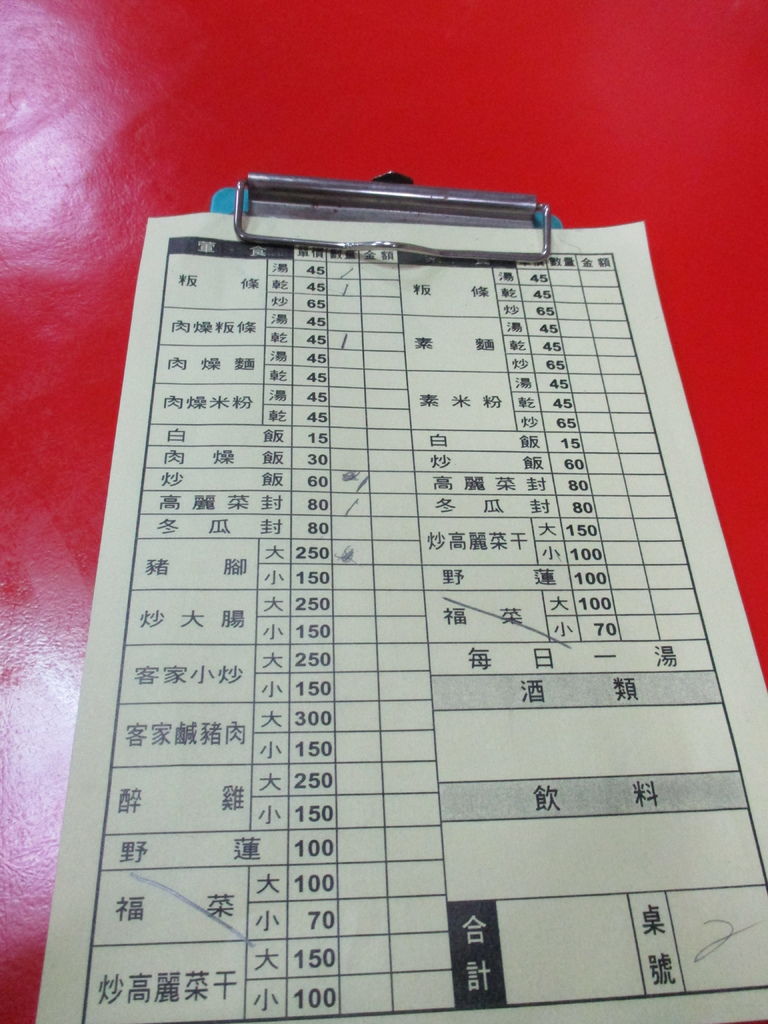 葷食 單價 數量 金額
粄條 湯 45 /
乾 45 /
炒 65
肉燥粄條 湯 45
乾 45 /
肉燥麵 湯 45
乾 45
肉燥米粉 湯 45
乾 45
白飯 15
肉燥飯 30
炒飯 60 /
高麗菜封 80 /
冬瓜封 80
豬腳 大 250
小 150
炒大腸 大 250
小 150
客家小炒 大 250
小 150
客家鹹豬肉 大 300
小 150
醉雞 大 250
小 150
野蓮 100
福菜 大 100
小 70
炒高麗菜干 大 150
小 100
單價 數量 金額
粄條 湯 45
乾 45
炒 65
素麵 湯 45
乾 45
炒 65
素米粉 湯 45
乾 45
炒 65
白飯 15
炒飯 60
高麗菜封 80
冬瓜封 80
炒高麗菜干 大 150
小 100
野蓮 100
福菜 大 100
小 70
每日一湯
酒類
飲料
合計
桌號 2